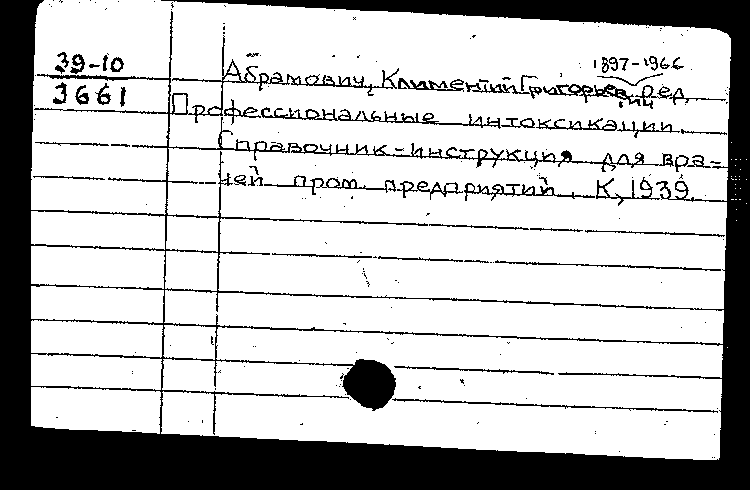 1897-1966
39-10
3661
Абрамович, Климентий Григорьев, ред.
ич
Профессиональные интоксикации.
Справочник-инструкция для вра=
чей пром. предприятий. К, 1939.